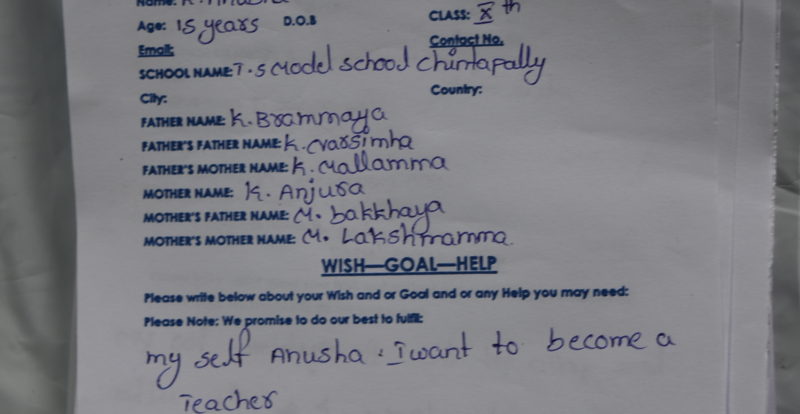 Name: K. Anusha
Age: 15 years D.O.B CLASS: X th
Email: Contact No.
SCHOOL NAME: T.S Model school chintapally
City: Country:
FATHER NAME: K. Brammaya
FATHER'S FATHER NAME: K. Narsimha
FATHER'S MOTHER NAME: K. Mallamma
MOTHER NAME: K. Anjusa
MOTHER'S FATHER NAME: M. bakkhaya
MOTHER'S MOTHER NAME: M. Lakshmamma.
WISH—GOAL—HELP
Please write below about your Wish and or Goal and or any Help you may need:
Please Note: We promise to do our best to fulfil:
my self Anusha. I want to become a
Teacher